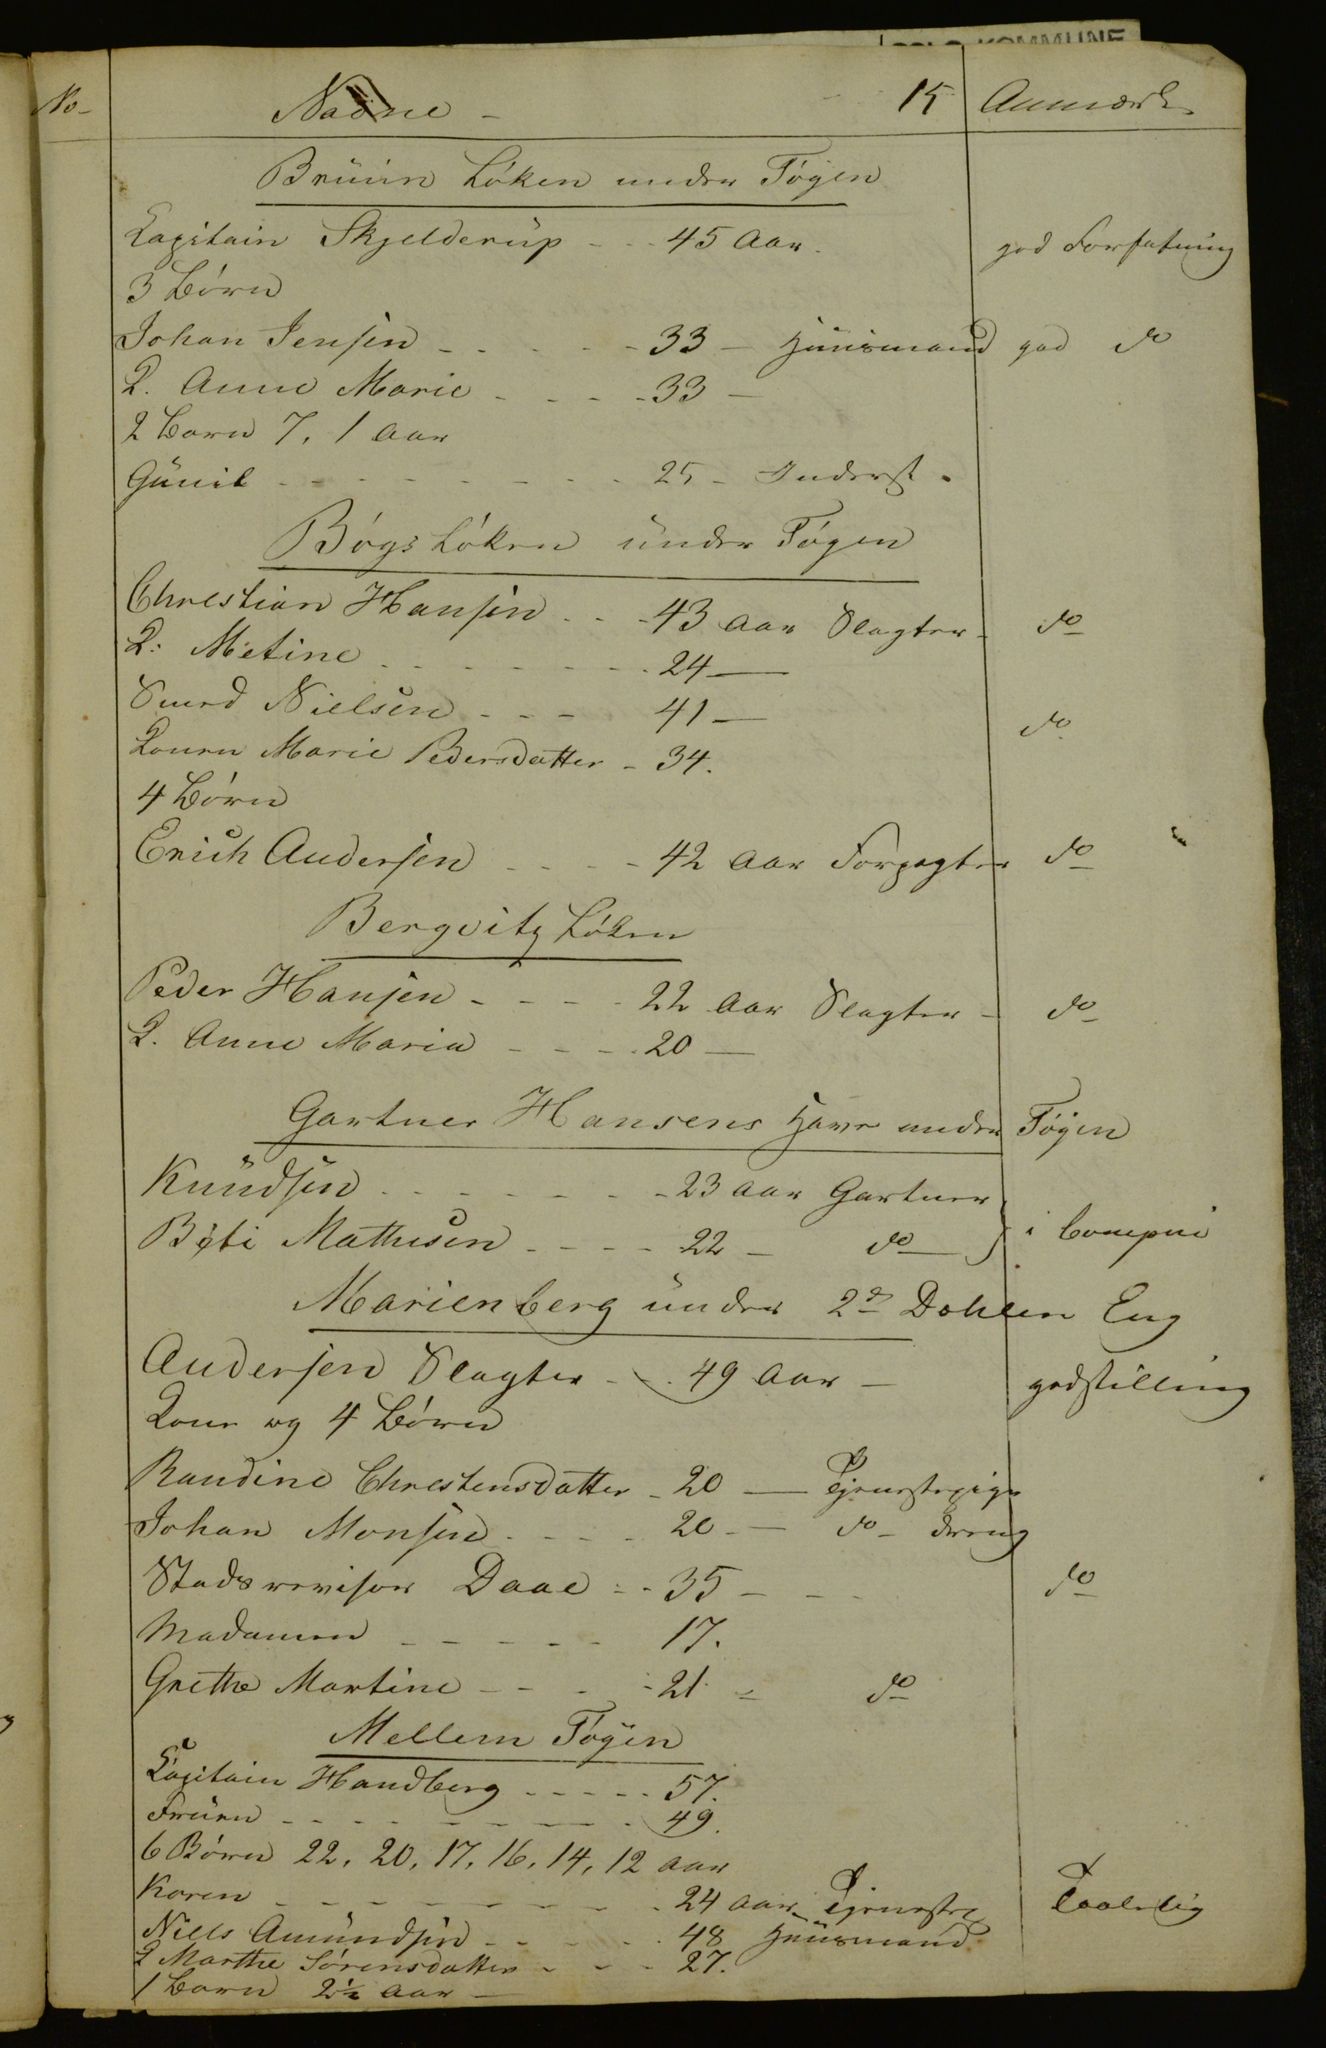 OSLO KOMMUNE
No- Navne - 15 Anmærk
Brüün Løken under Tøyen
Capitain Skjelderup - - 45 Aar. god Forfatning
3 Børn
Johan Jensen - - - - - 33 - Huusmand god do
K. Anne Marie - - - - 33 -
2 Børn 7, 1 Aar
Günil - - - - - - - - 25 - Inderst -
Bøgs Løken under Tøyen
Christian Hansen - - - 43 Aar Slagter - do
K. Metine - - - - - - - 24 -
Smed Nielsen - - - 41 - do
Konen Marie Pedersdatter - 34.
4 Børn
Erich Andersen - - - - 42 Aar Forpagter do
Bergvitz Løken
Peder Hansen - - - - 22 Aar Slagter - do
K. Anne Maria - - - - 20 -
Gartner Hansens Have under Tøyen
Knudsen - - - - - - - 23 Aar Gartner
Mathisen - - - - 22 - do } i Compni
Marienberg under 2d Dohlen Eng
Andersen Slagter - - 49 Aar - god stilling
Kone og 4 Børn
Randine Christensdatter - 20 - Tjenestepige
Johan Monsen - - - - 20 - do - dreng
Stadsrevisor Daae - - 35 - - - do
Madamen - - - - - 17.
Grethe Martine - - - - 21 - do
Mellem Tøyen
Capitain Handberg - - - - - 57.
Fruen - - - - - - - - 49.
6 Børn 22, 20, 17, 16, 14, 12 aar
Karen - - - - - - - - - 24 aar Tjeneste Taalelig
Niels Amundsen - - - - - 48 Huusmand
K Marthe Sørensdatter - - - 27.
1 Barn 2½ Aar -